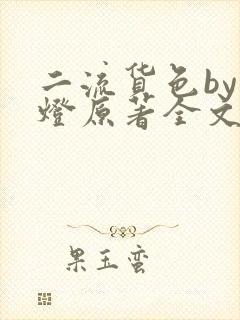 二流货色by
燈原著全文
果玉蛮